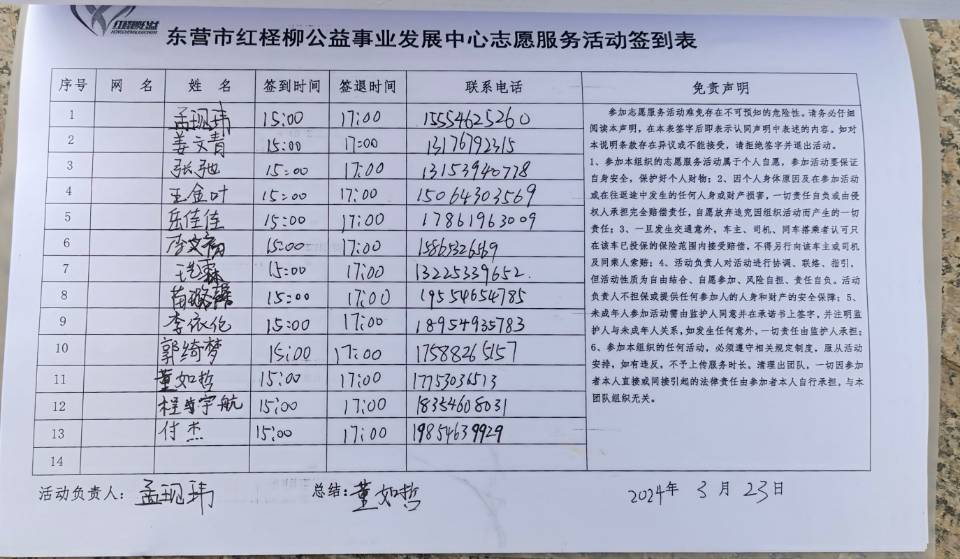 红柽柳公益
东营市红柽柳公益事业发展中心志愿服务活动签到表
序号 网 名 姓 名 签到时间 签退时间 联系电话 免责声明
1 孟现玮 15:00 17:00 15554625260
2 姜文青 15:00 17:00 13176792315
3 张弛 15:00 17:00 13153940778
4 王金叶 15:00 17:00 15064303569
5 岳佳佳 15:00 17:00 17861963009
6 李文 15:00 17:00 15865326569
7 王 15:00 17:00 13225339652
8 苗 15:00 17:00 19554654785
9 李依伦 15:00 17:00 18954935783
10 郭绮梦 15:00 17:00 17588265157
11 董如哲 15:00 17:00 17753036513
12 程 宇航 15:00 17:00 18354608031
13 付杰 15:00 17:00 19854639929
14
参加志愿服务活动难免存在不可预知的危险性。请务必仔细
阅读本声明，在本表签字后即表示认同声明中表述的内容。如对
本说明条款存在异议或不能接受，请拒绝签字并退出活动。
1、参加本组织的志愿服务活动属于个人自愿，参加活动要保证
自身安全，保护好个人财物；2、因个人身体原因及在参加活动
或在往返途中发生的任何人身或财产损害，一切责任自负或由侵
权人承担完全赔偿责任，自愿放弃追究因组织活动而产生的一切
责任；3、一旦发生交通意外，车主、司机、同车搭乘者认可只
在该车已投保的保险范围内接受赔偿，不得另行向该车主或司机
及同乘人索赔；4、活动负责人对活动进行协调、联络、指引，
但活动性质为自由结合、自愿参加、风险自担、责任自负。活动
负责人不担保或提供任何参加人的人身和财产的安全保障；5、
未成年人参加活动需由监护人同意并在承诺书上签字，并注明监
护人与未成年人关系，如发生任何意外，一切责任由监护人承担；
6、参加本组织的任何活动，必须遵守相关规定制度，服从活动
安排，如有违反，不予上传服务时长。请理出团队，一切因参加
者本人直接或间接引起的法律责任由参加者本人自行承担，与本
团队组织无关。
活动负责人：孟现玮 总结：董如哲 2024年 3月 23日